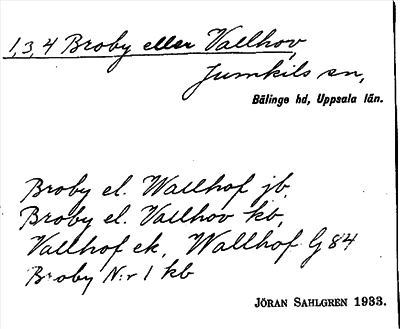 1,3,4 Broby eller Vallhov,
Jumkils sn,
Bälinge hd, Uppsala län.
Broby el. Wallhof jb,
Broby el. Vallhov kb,
Vallhof ek, Wallhof G 84
Broby N:r 1 kb
JÖRAN SAHLGREN 1933.